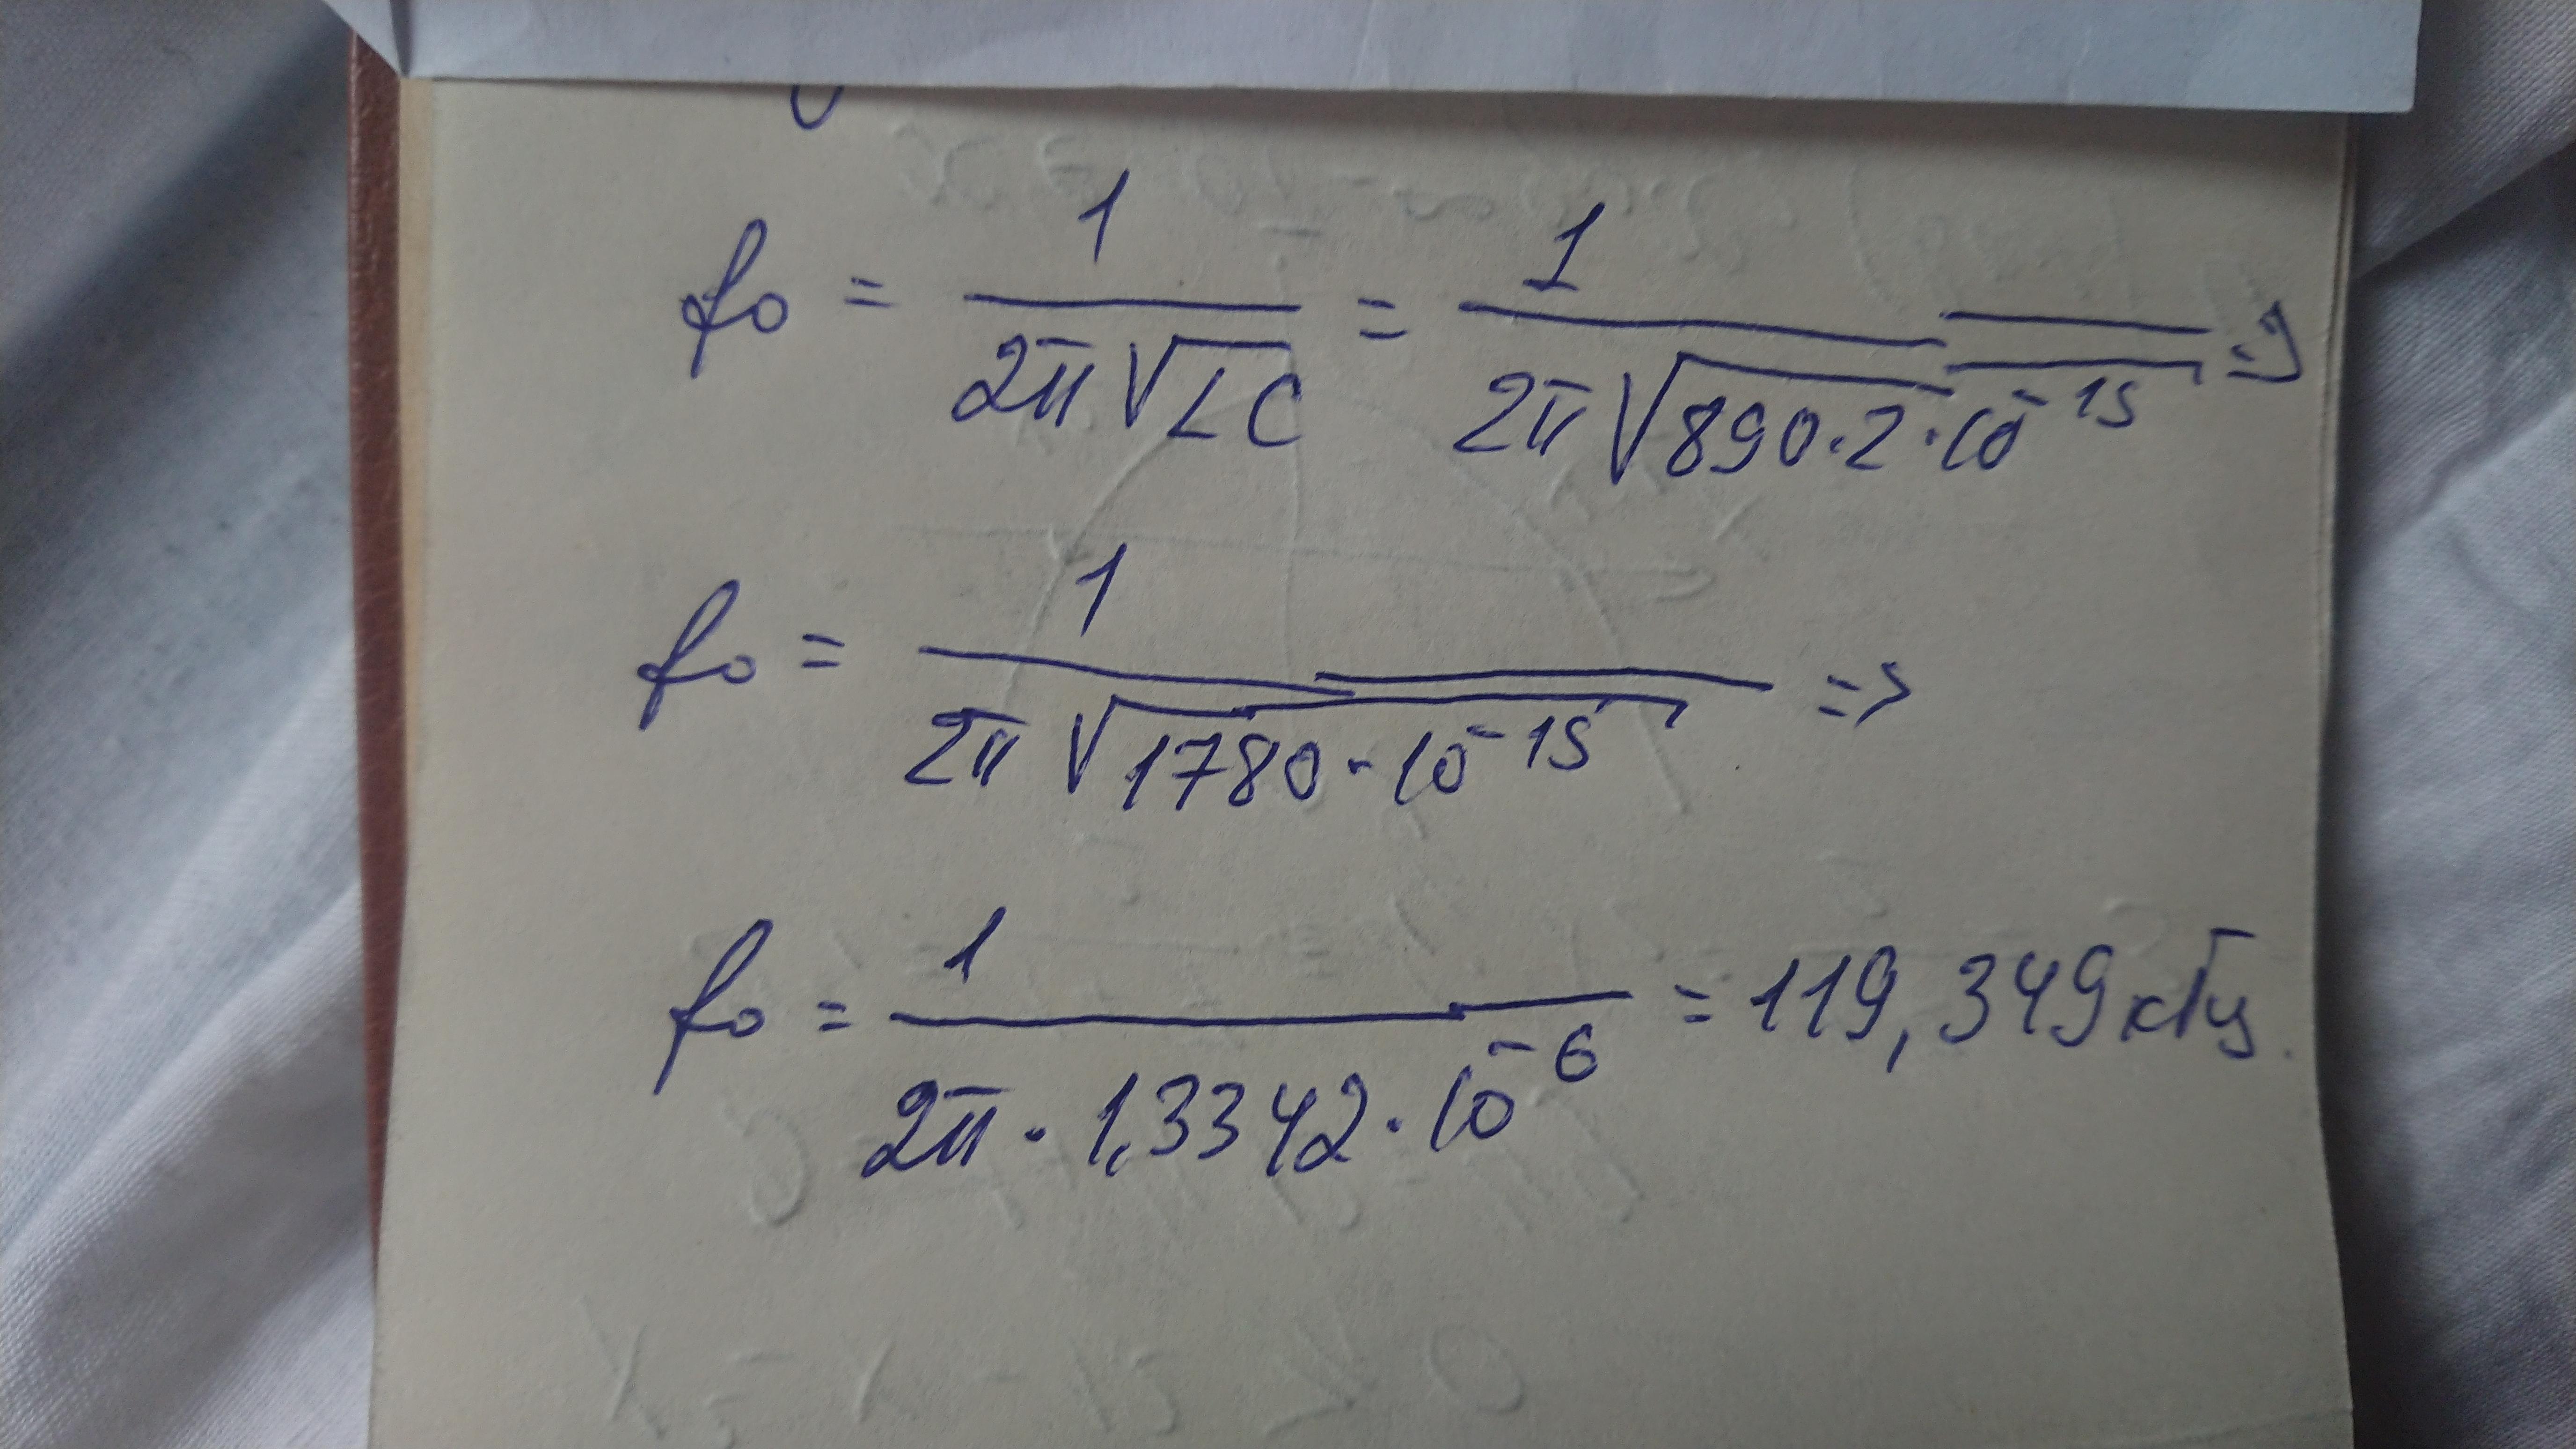 f₀ = 1 / 2π√LC = 1 / 2π√890·2·10⁻¹⁵ =>
f₀ = 1 / 2π√1780·10⁻¹⁵ =>
f₀ = 1 / 2π·1,3342·10⁻⁶ = 119,349 кГц.